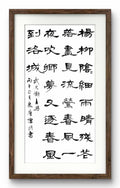 楊柳陰陰細雨晴殘花
落盡見流鶯春風一
夜吹鄉夢又逐春風
到洛城
武元衡春興